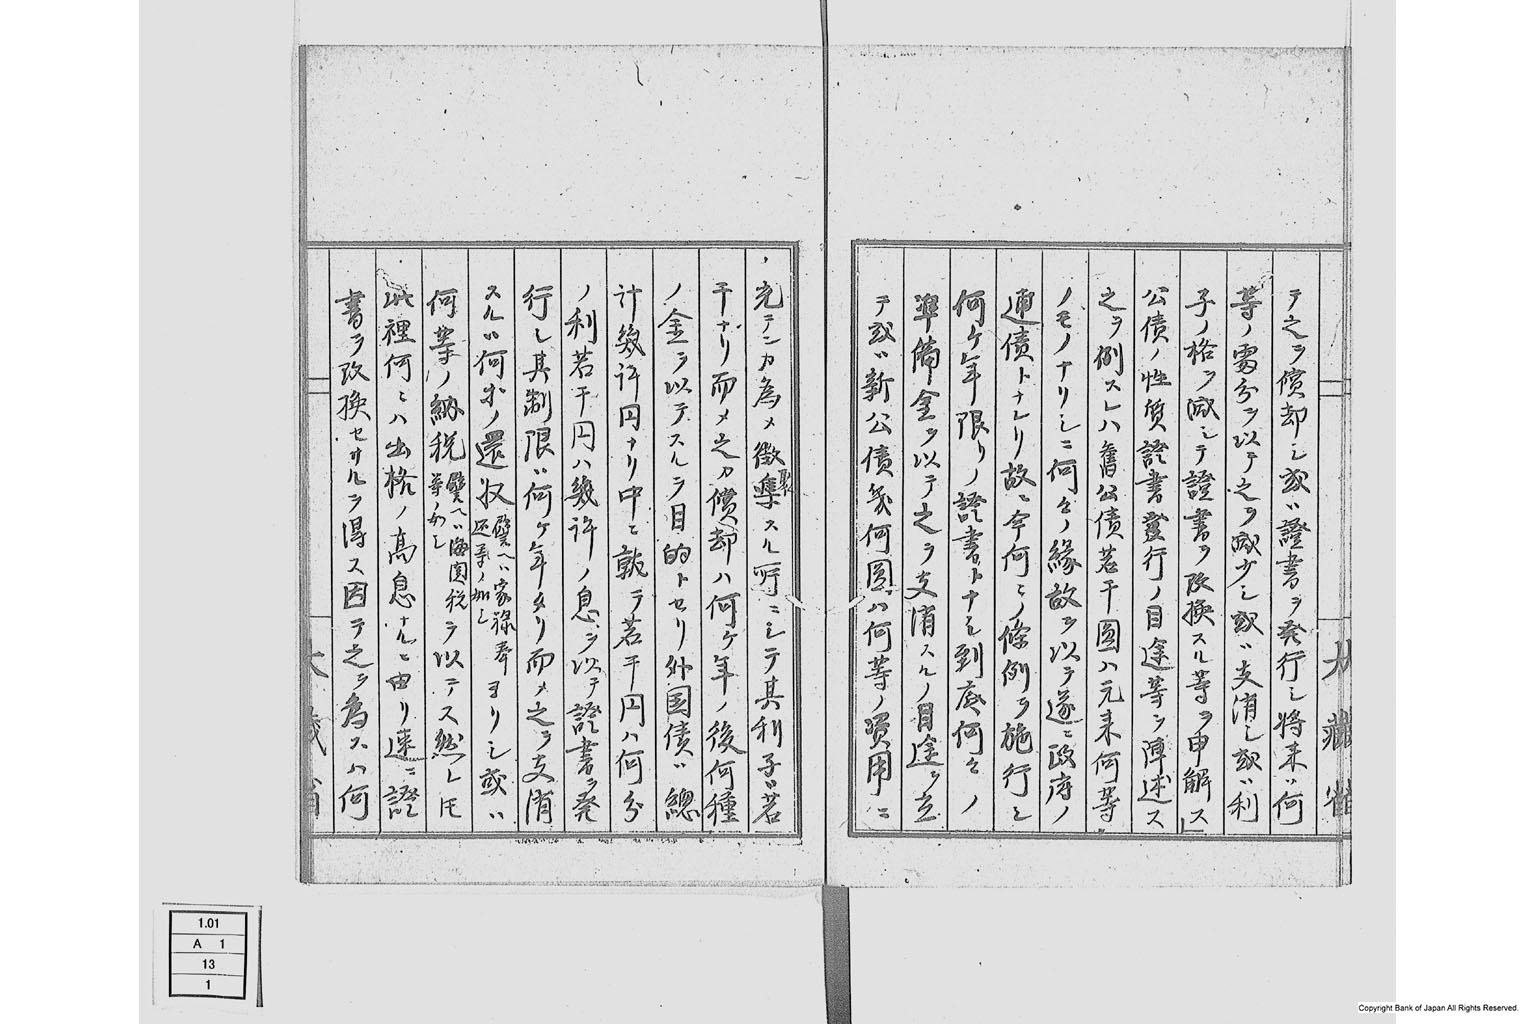 テ之ヲ償却シ或ハ證書ヲ発行シ將来ハ何
等ノ零分ヲ以テ之ヲ減少シ或ハ支消シ或ハ利
子ノ格ヲ減シテ證書ヲ改換スル等ヲ申解ス
公債ノ性質證書發行ノ目途等ヲ陣述ス
之ヲ例スレハ舊公債若干圓ハ元来何等
ノモノナリシニ何々ノ縁故ヲ以テ遂ニ政府ノ
逋債トナレリ故ニ今何々ノ條例ヲ施行シ
何ケ年限リノ證書トナシ到底何々ノ
準備金ヲ以テ之ヲ支消スルノ目途ヲ立
テ或ハ新公債幾何圓ハ何等ノ費用ニ
充テンカ為メ徴集スル所ニシテ其利子ハ若
聚
干ナリ而メ之カ償却ハ何ケ年ノ後何種
ノ金ヲ以テスルヲ目的トセリ外国債ハ總
計幾許円ナリ中ニ就テ若干円ハ何分
ノ利若干円ハ幾許ノ息ヲ以テ證書ヲ発
行シ其制限ハ何ケ年タリ而メ之ヲ支消
スルハ何等ノ還収譬ヘハ家禄奉還等ノ如シヨリシ或ハ
何等ノ納税譬ヘハ海関税等ノ如シヲ以テス然レ𪜈
此裡何々ハ出格ノ高息ナルニ由リ速ニ證
書ヲ改換セサルヲ得ス因テ之ヲ為スハ何
大藏省
大藏省
1.01
A 1
13
1
Copyright Bank of Japan All Rights Reserved.